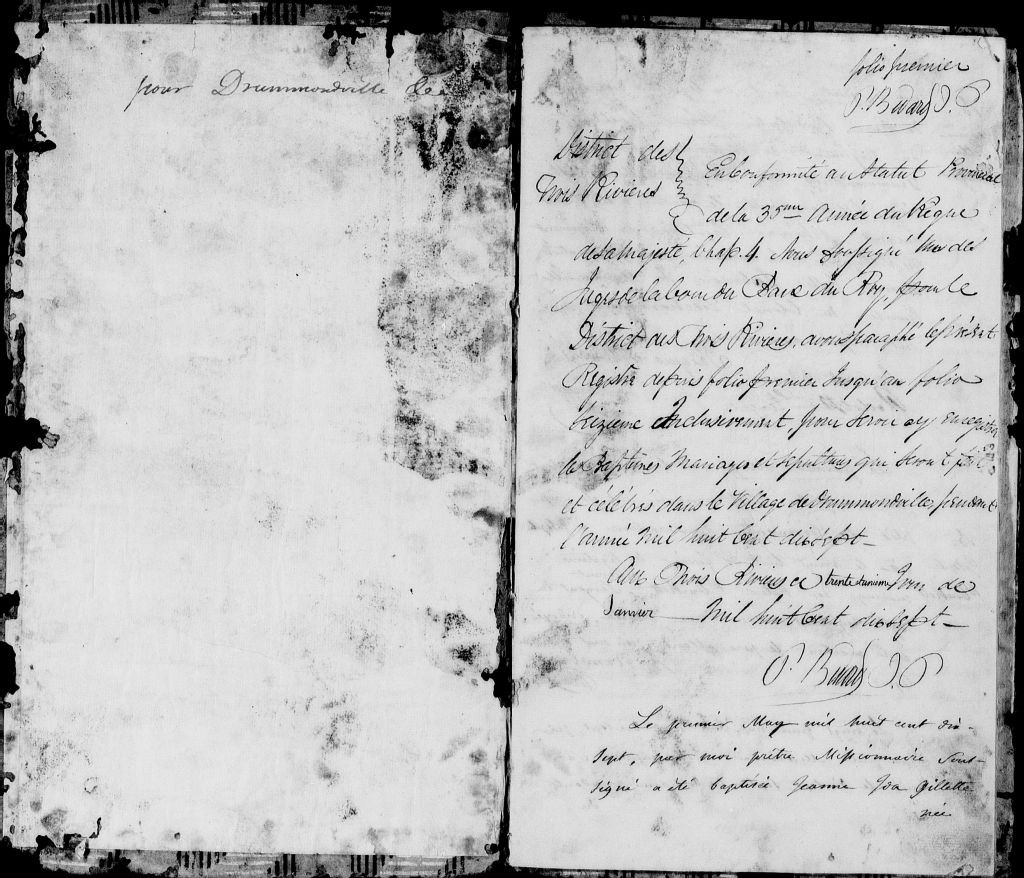 pour Drummondville
folio premier
P. Bedard J. P
District des
Trois Rivieres
En Conformité au Statut Provincial
de la 35eme Année du Règne
de sa majesté, Chap. 4. Nous Soussigné un des
Juges de la Cour du Banc du Roy, pour le
District des Trois Rivieres, avons paraphé le présent
Registre depuis folio premier Jusqu'au folio
Seizieme Inclusivement, pour Servir a y enregistrer
les Baptêmes Mariages et sepultures qui seront fait
et célébrés dans le Village de Drummondville, pendant
l'année Mil huit Cent dixsept —
Aux Trois Rivieres ce trente et unieme Jour de
Janvier — Mil huit Cent dixsept —
P. Bedard J. P
Le premier May mil huit cent dix-
sept, par moi prêtre Missionnaire Sous-
signé a été baptisée Jeanne Ida Gillette
née